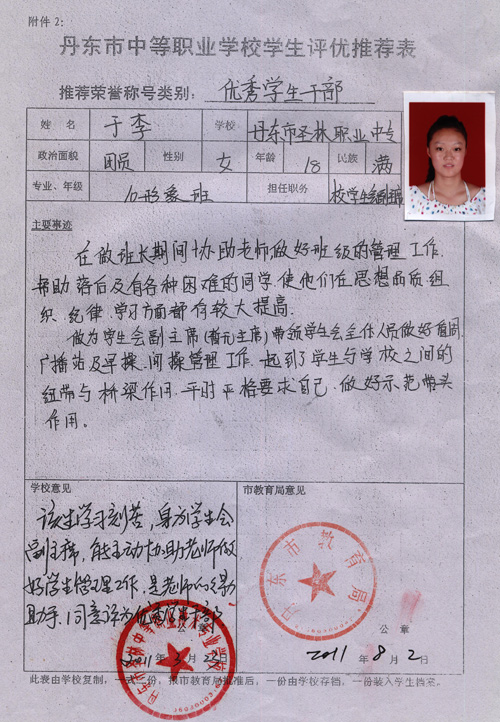 附件 2：
丹东市中等职业学校学生评优推荐表
推荐荣誉称号类别： 优秀学生干部
姓 名 于李 学校 丹东市圣林职业中专
政治面貌 团员 性别 女 年龄 18 民族 满
专业、年级 10形象班 担任职务 校学生会副主席
主要事迹
在做班长期间协助老师做好班级的管理工作.
帮助落后及有各种困难的同学.使他们在思想品质.组
织.纪律.学习方面都有较大提高.
做为学生会副主席(暂无主席)带领学生会全体人员做好值周.
广播站及早操.间操管理工作.起到了学生与学校之间的
纽带与桥梁作用.平时严格要求自己.做好示范带头
作用.
学校意见
市教育局意见
该生学习刻苦，身为学生会
副主席，能主动协助老师做
好学生管理工作，是老师的得力
助手.同意该为优秀学生干部
公 章
2011 年 3 月 22 日
丹东市教育局
公 章
2011 年 8 月 2
此表由学校复制，一式二份，报市教育局批准后，一份由学校存档，一份装入学生档案。